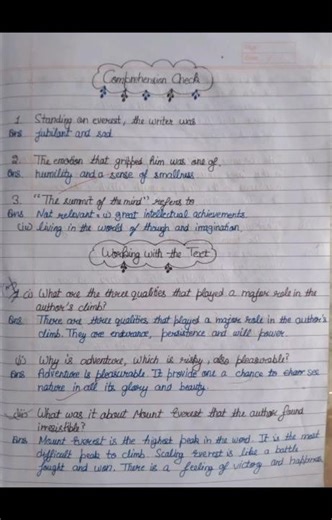 Comprehension Check
1. Standing an everest, the writer was
Ans jubilant and sad.
2. The emotion that gripped him was one of,
Ans humility and a sense of smallness.
3. "The summit of the mind" refers to
Ans Not relevant. great intellectual achievements.
(iii) living in the world of though and imagination.
Working with the Text
(i) What are the three qualities that played a major role in the
author's climb?
Ans There are three qualities that played a major role in the author's
climb. They are endurance, persistence and will power.
(ii) Why is adventure, which is risky, also pleasurable?
Ans Adventure is pleasurable. It provide one a chance to see
nature in all its glory and beauty.
(iii) What was it about Mount Everest that the author found
irresistible?
Ans Mount Everest is the highest peak in the word. It is the most
difficult peak to climb. Scaling Everest is like a battle
fought and won. There is a feeling of victory and happiness.